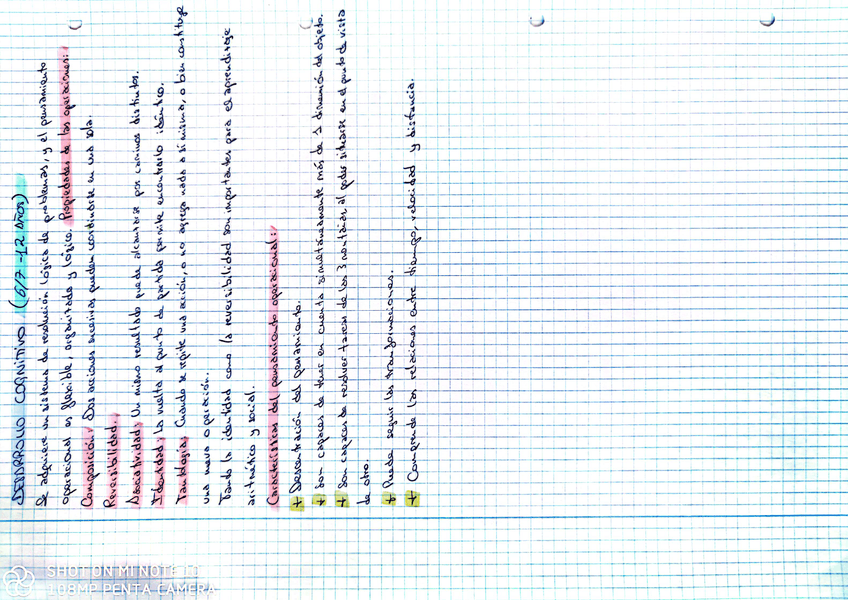 DESARROLLO COGNITIVO (6/7-12 AÑOS)
Se adquiere un sistema de resolución lógica de problemas, y el pensamiento
operacional es flexible, organizado y lógico. Propiedades de las operaciones:
Composición: Dos acciones sucesivas pueden coordinarse en una sola.
Reversibilidad.
Asociatividad: Un mismo resultado puede alcanzarse por caminos distintos.
Identidad: La vuelta al punto de partida permite encontrarlo idéntico.
Tautología: Cuando se repite una acción, o no agrega nada a sí misma, o bien constituye
una nueva operación.
Tanto la identidad como la reversibilidad son importantes para el aprendizaje
aritmético y social.
Características del pensamiento operacional:
+ Descentración del pensamiento.
+ Son capaces de tener en cuenta simultáneamente más de 1 dimensión del objeto.
+ Son capaces de resolver tareas de las 3 montañas al poder situarse en el punto de vista
de otro.
+ Puede seguir las transformaciones.
+ Comprende las relaciones entre tiempo, velocidad y distancia.
SHOT ON MI NOTE 10
108MP PENTA CAMERA